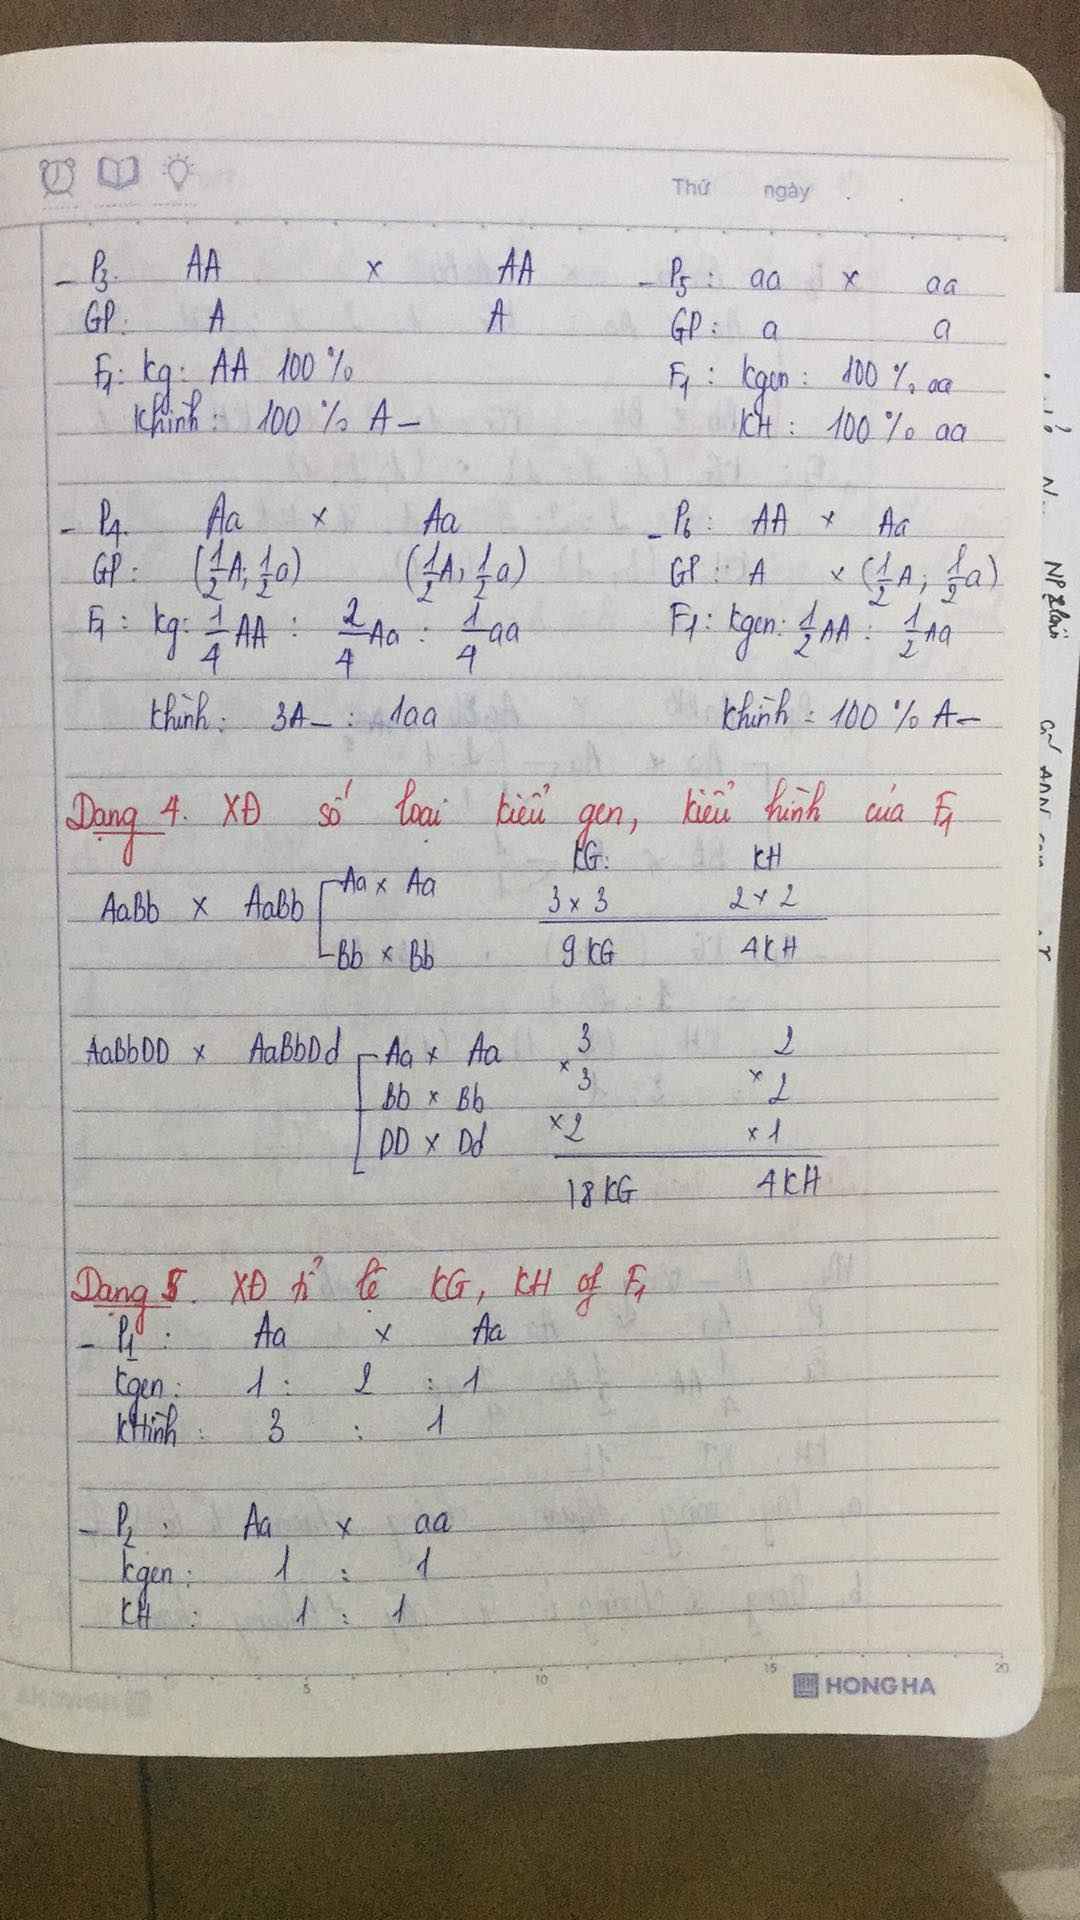 Thứ ngày
- P3. AA x AA
GP: A A
F1: kg: AA 100%
Khình: 100% A-
- P5: aa x aa
GP: a a
F1: kgen: 100% aa
KH: 100% aa
- P4. Aa x Aa
GP: (1/2A; 1/2a) (1/2A, 1/2a)
F1: kg: 1/4AA : 2/4Aa : 1/4aa
khình: 3A- : 1aa
- P6: AA x Aa
GP: A x (1/2A; 1/2a)
F1: kgen: 1/2AA : 1/2Aa
khình: 100% A-
Dạng 4. XĐ số loại kiểu gen, kiểu hình của F1
KG: KH
AaBb x AaBb Aa x Aa 3 x 3 2 x 2
Bb x Bb 9 KG 4KH
AaBbDD x AaBbDd Aa x Aa 3 2
Bb x Bb x 3 x 2
DD x Dd x 2 x 1
18 KG 4KH
Dạng 5. XĐ tỉ lệ KG, KH of F1
- P1: Aa x Aa
kgen: 1 : 2 : 1
KHình: 3 : 1
- P2: Aa x aa
kgen: 1 : 1
KH: 1 : 1
5 10 15 20
HONG HA